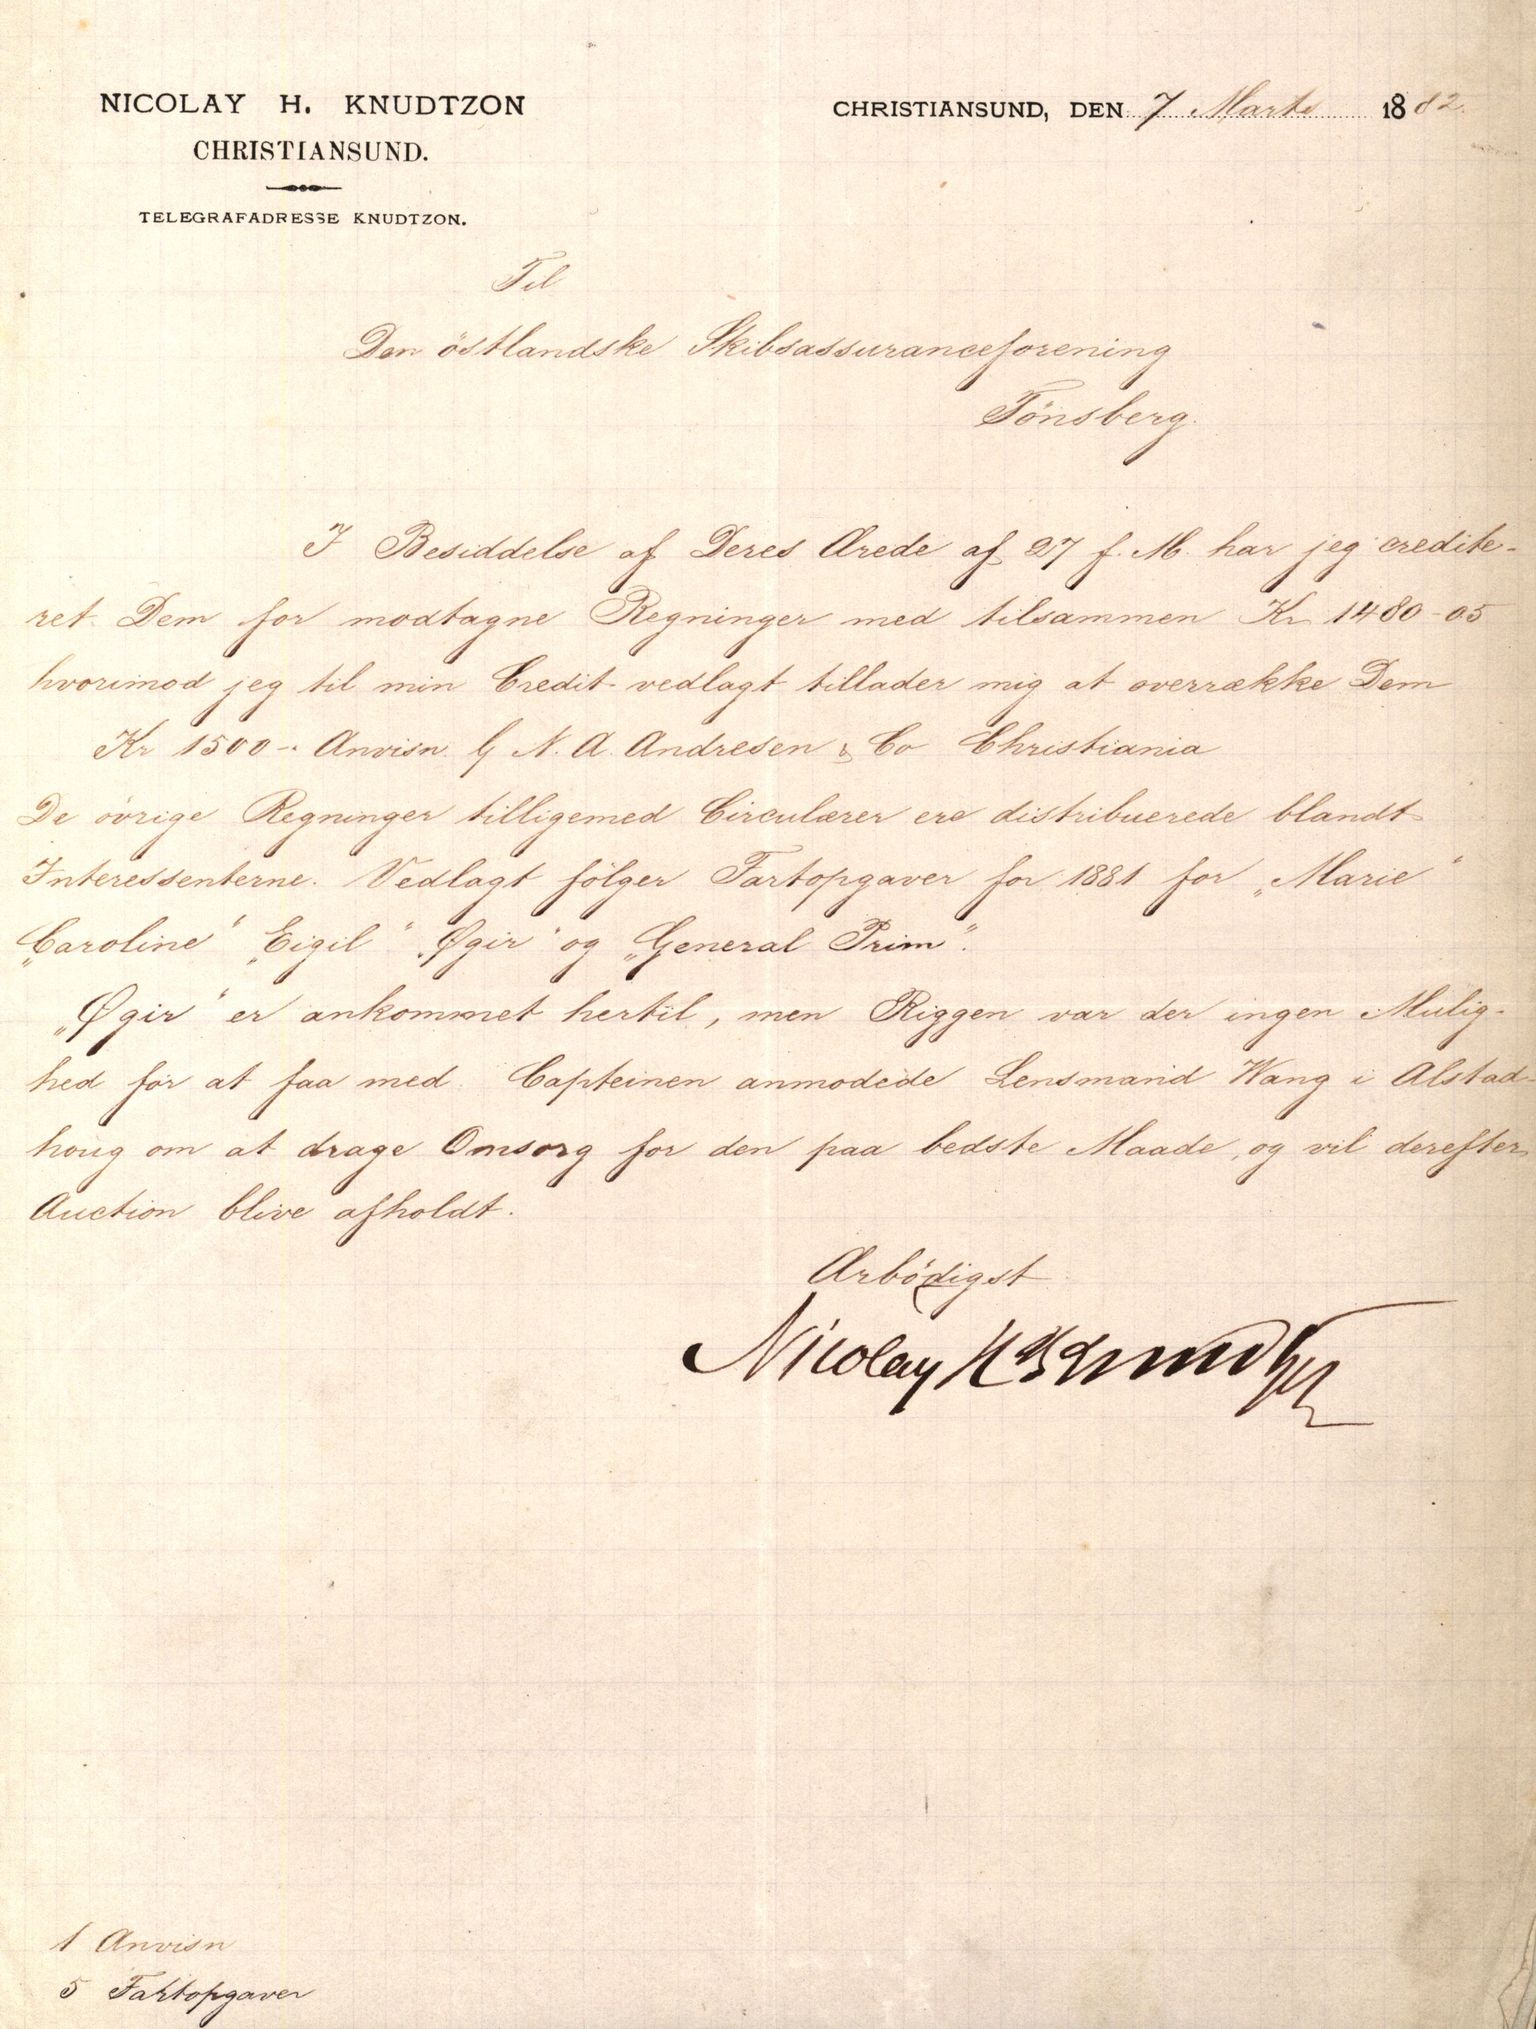 NICOLAY H. KNUDTZON
CHRISTIANSUND.
TELEGRAFADRESSE KNUDTZON.
CHRISTIANSUND, DEN 7 Marts 1882.
Til
Den östlandske Skibsassuranceforening
Tönsberg.
I Besiddelse af Deres Ærede af 27 f. M. har jeg credite-
ret Dem for modtagne Regninger med tilsammen Kr 1480-05
hvorimod jeg til min Credit vedlagt tillader mig at overrække Dem
Kr 1500-. Anvisn. N. A. Andresen & Co Christiania
De övrige Regninger tilligemed Circulærer ere distribuerede blandt
Interessenterne. Vedlagt fölger Fartopgaver for 1881 for „Marie"
„Caroline" „Eigil" „Øgir" og „General Prim".
„Øgir" er ankommet hertil, men Riggen var der ingen Mulig-
hed for at faa med. Capteinen anmodede Lensmand Wang i Alstad-
houg om at drage Omsorg for den paa bedste Maade, og vil derefter
Auction blive afholdt.
Ærbödigst
Nicolay H Knudtzon
1 Anvisn
5 Fartopgaver